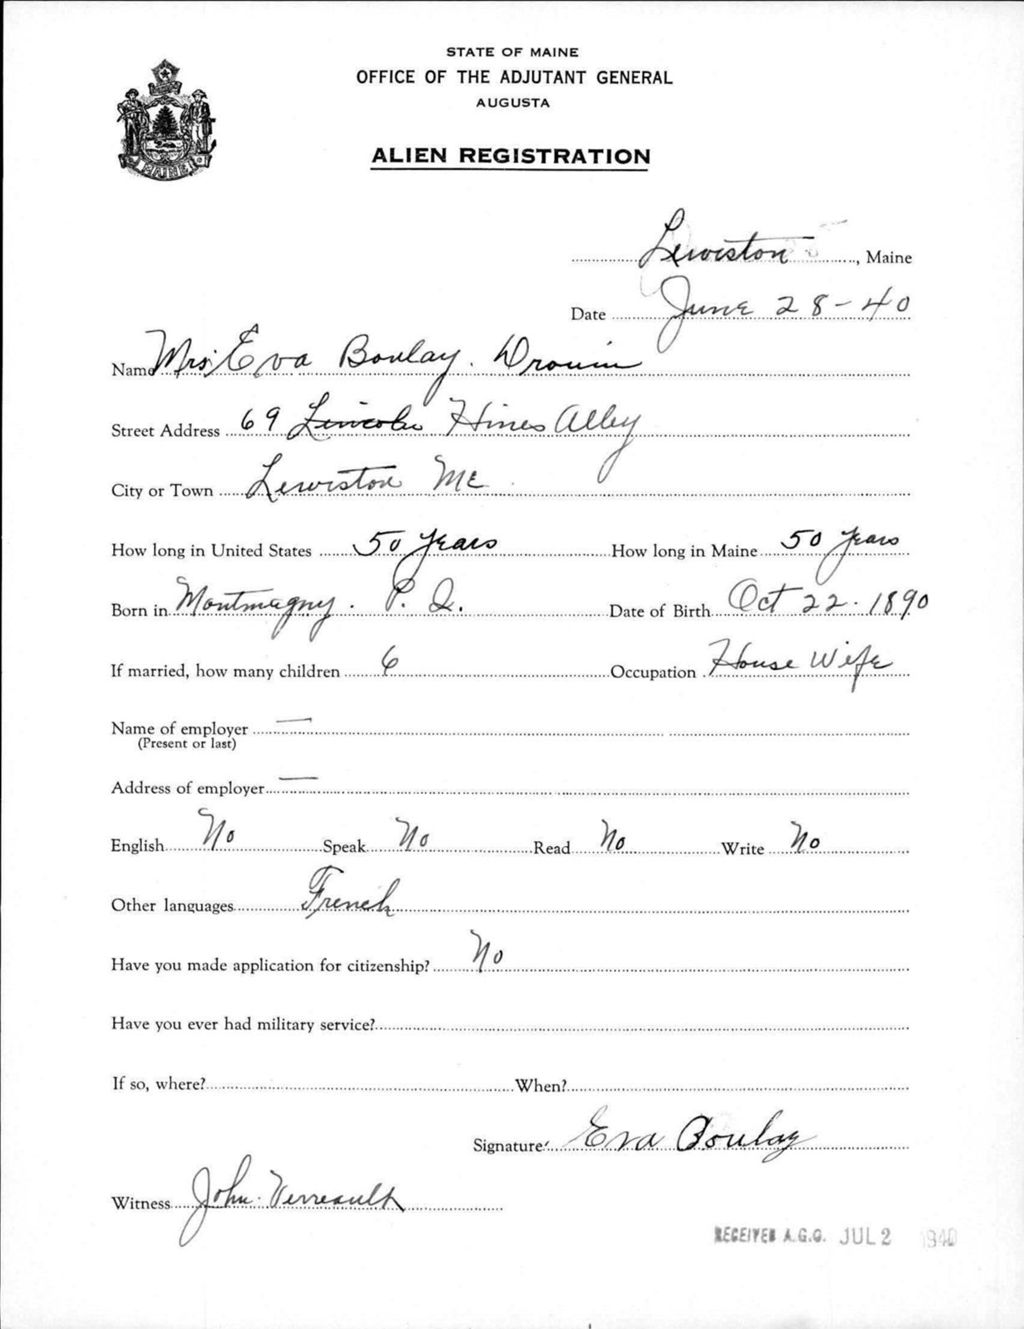 STATE OF MAINE
OFFICE OF THE ADJUTANT GENERAL
AUGUSTA
ALIEN REGISTRATION
Lewiston, Maine
Date June 28-40
Name Mrs. Eva Boulay. Drouin
Street Address 69 Lincoln Hines Alley
City or Town Lewiston Me.
How long in United States 50 years How long in Maine 50 years
Born in Montmagny. P. Q. Date of Birth Oct 22. 1890
If married, how many children 6 Occupation House Wife
Name of employer —
(Present or last)
Address of employer —
English No Speak No Read No Write No
Other languages French
Have you made application for citizenship? No
Have you ever had military service?
If so, where? When?
Signature Eva Boulay
Witness John Verreault
RECEIVED A.G.O. JUL 2 1940
MAINE